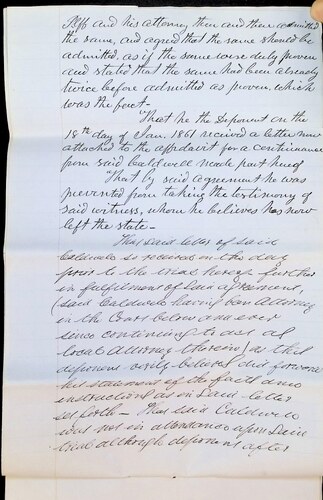 Plff and his attorney then and there admitted
the same, and agreed that the same should be
admitted, as if the same were duly proven
and stated that the same had been already
twice before admitted as proven, which
was the fact—
That he the Deponent on the
18th day of Jan. 1861 received a letter now
attached to the affidavit for a continuance
from said Caldwell made part hereof
That by said agreement he was
prevented from taking the testimony of
said witness, whom he believes has now
left the state—
That said letter of said
Caldwell is received on this day
prior to the trial hereof further
in fulfilment of said agreement,
(said Caldwell having been Attorney
in the Court below and ever
since continuing to act as
local Attorney therein) as this
deponent verily believes did forward
his statement of the facts and
instructions as in said letter
set forth— That said Caldwell
was not in attendance upon said
trial although deponent after